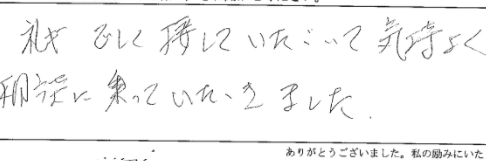 礼ぎ正しく接していただいて気持よく
相談に乗っていただきました。
ありがとうございました。私の励みにいた